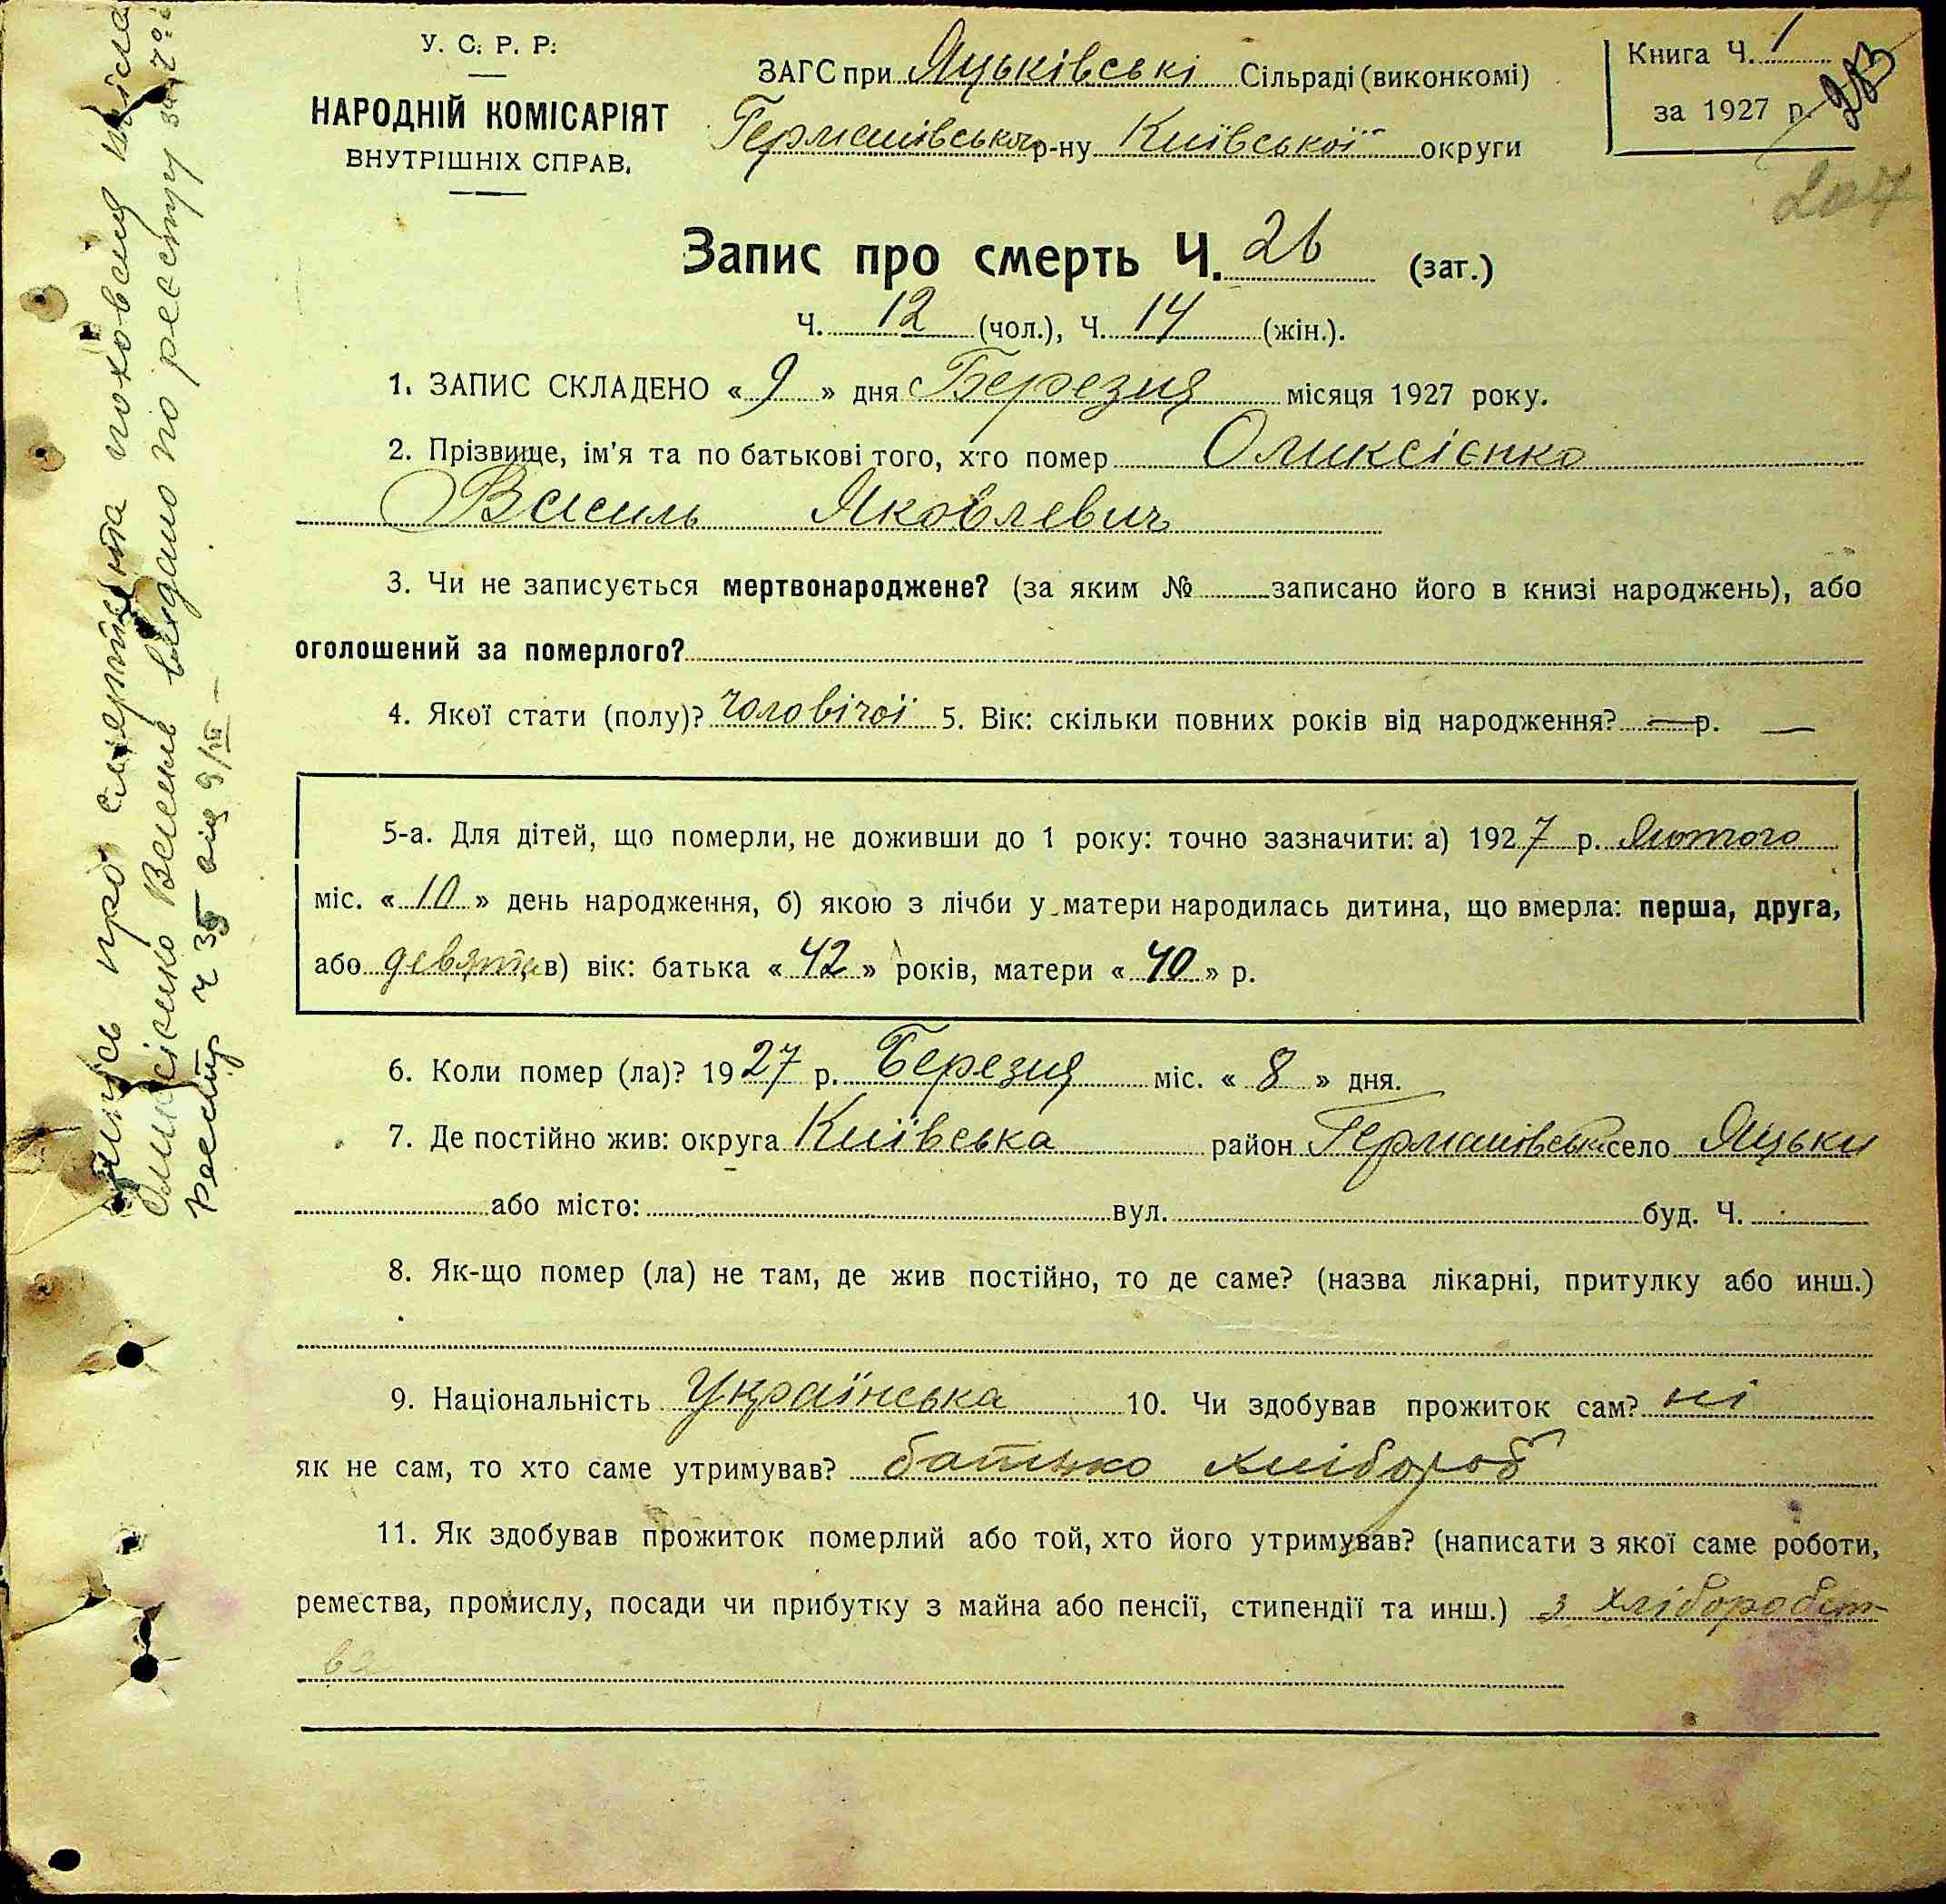 У. С. Р. Р.
НАРОДНІЙ КОМІСАРІЯТ
ВНУТРІШНІХ СПРАВ.
ЗАГС при Яцьківські Сільраді (виконкомі)
Германівського р-ну Київської округи
Книга Ч. 1
за 1927 р.
213
207
Запис про смерть Ч. 26 (заг.)
Ч. 12 (чол.), Ч. 14 (жін.).
1. ЗАПИС СКЛАДЕНО « 9 » дня Березня місяця 1927 року.
2. Прізвище, ім'я та по батькові того, хто помер Оликсієнко
Василь Яковлевич
3. Чи не записується мертвонароджене? (за яким № записано його в книзі народжень), або
оголошений за померлого?
4. Якої стати (полу)? чоловічої 5. Вік: скільки повних років від народження? — р. —
5-а. Для дітей, що померли, не доживши до 1 року: точно зазначити: а) 1927 р. Лютого
міс. « 10 » день народження, б) якою з лічби у матери народилась дитина, що вмерла: перша, друга,
або девята в) вік: батька « 42 » років, матери « 40 » р.
6. Коли помер (ла)? 1927 р. Березня міс. « 8 » дня.
7. Де постійно жив: округа Київська район Германівськ село Яцьки
або місто: вул. буд. Ч.
8. Як-що помер (ла) не там, де жив постійно, то де саме? (назва лікарні, притулку або инш.)
9. Національність Українська 10. Чи здобував прожиток сам? ні
як не сам, то хто саме утримував? батько хлібороб
11. Як здобував прожиток померлий або той, хто його утримував? (написати з якої саме роботи,
ремества, промислу, посади чи прибутку з майна або пенсії, стипендії та инш.) з хліборобст-
ва
про смерть та поховання після
Оликсієнко Василь видано по реєстру за
реєстр ч 35 від 9/III